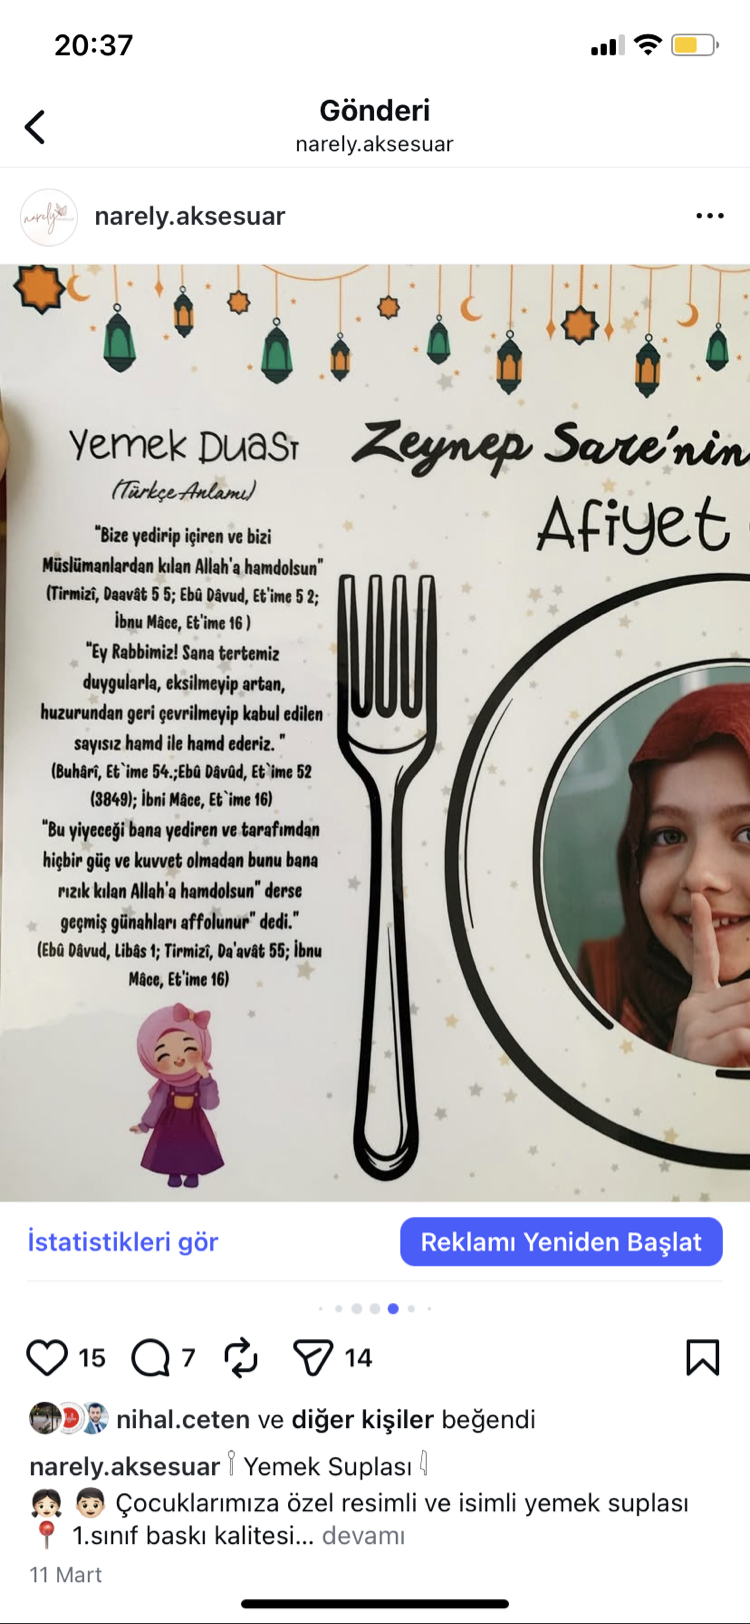 20:37
Gönderi
narely.aksesuar
narely
narely.aksesuar
Yemek Duası
(Türkçe Anlamı)
"Bize yedirip içiren ve bizi
Müslümanlardan kılan Allah'a hamdolsun"
(Tirmizî, Daavât 5 5; Ebû Dâvud, Et'ime 5 2;
İbnu Mâce, Et'ime 16 )
"Ey Rabbimiz! Sana tertemiz
duygularla, eksilmeyip artan,
huzurundan geri çevrilmeyip kabul edilen
sayısız hamd ile hamd ederiz. "
(Buhârî, Et`ime 54.;Ebû Dâvûd, Et`ime 52
(3849); İbni Mâce, Et`ime 16)
"Bu yiyeceği bana yediren ve tarafımdan
hiçbir güç ve kuvvet olmadan bunu bana
rızık kılan Allah'a hamdolsun" derse
geçmiş günahları affolunur" dedi."
(Ebû Dâvud, Libâs 1; Tirmizî, Da'avât 55; İbnu
Mâce, Et'ime 16)
Zeynep Sare'nin
Afiyet
İstatistikleri gör
Reklamı Yeniden Başlat
15 7 14
nihal.ceten ve diğer kişiler beğendi
narely.aksesuar Yemek Suplası
👧🏻 👦🏻 Çocuklarımıza özel resimli ve isimli yemek suplası
📍 1.sınıf baskı kalitesi... devamı
11 Mart